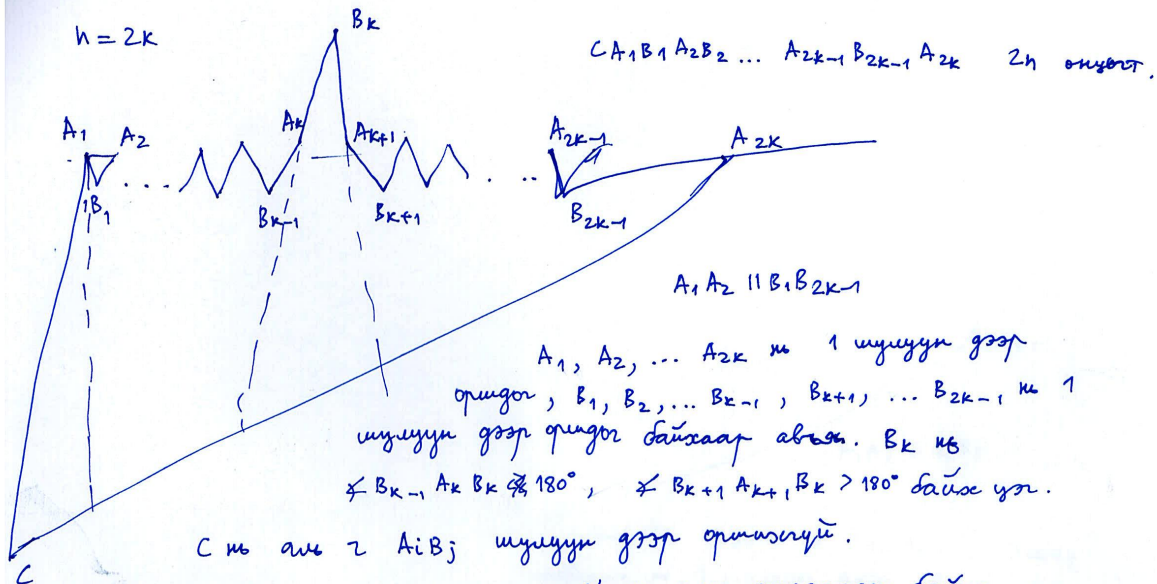 n = 2k
B_k
C A_1 B_1 A_2 B_2 ... A_{2k-1} B_{2k-1} A_{2k} 2n өнцөгт.
A_1 A_2 A_k A_{k+1} A_{2k-1} A_{2k}
... . ...
B_1 B_{k-1} B_{k+1} B_{2k-1}
A_1 A_2 || B_1 B_{2k-1}
A_1, A_2, ... A_{2k} нь 1 шулуун дээр
оршдог, B_1, B_2, ... B_{k-1}, B_{k+1}, ... B_{2k-1} нь 1
шулуун дээр оршдог байхаар авъя. B_k нь
∢ B_{k-1} A_k B_k 180°, ∢ B_{k+1} A_{k+1} B_k > 180° байх цэг.
C нь аль ч A_i B_j шулуун дээр оршихгүй.
C